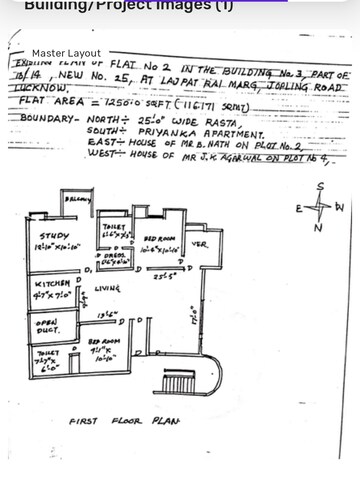 Building/Project Images (1)
Master Layout
EXISTING PLAN OF FLAT NO 2 IN THE BUILDING No. 3, PART OF
10/14, NEW NO. 25, AT LAJPAT RAI MARG, JOPLING ROAD
LUCKNOW.
FLAT AREA = 1250.0 SQFT (116.171 SQMT)
BOUNDARY- NORTH÷ 25'.0" WIDE RASTA,
SOUTH÷ PRIYANKA APARTMENT.
EAST÷ HOUSE OF MR. B. NATH ON PLOT No. 2,
WEST÷ HOUSE OF MR J.K AGARWAL ON PLOT No 4,
S
E W
N
BALCONY
STUDY
12'-10" x 10'-10"
TOILET
DRESS
BED ROOM
VER.
25'-5"
KITCHEN
9'-7" x 7'-0"
LIVING
OPEN
DUCT.
17'-0"
TOILET
7'-7" x
6'-0"
BED ROOM
9'-1" x
10'-10"
D
D
D
D
D
D
D
D
FIRST FLOOR PLAN